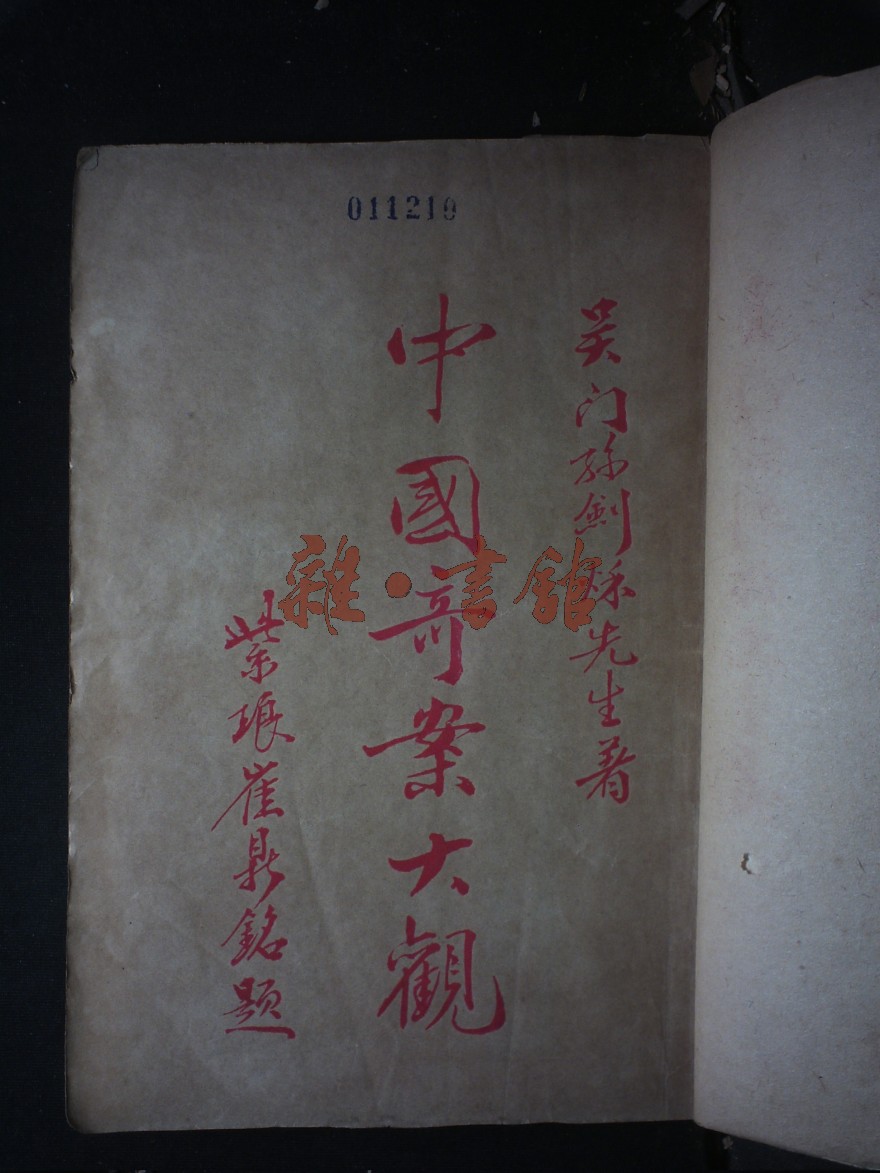 011210
吴门孙劍秋先生著
中國奇案大觀
紫琅崔鼎銘题
雜·書館